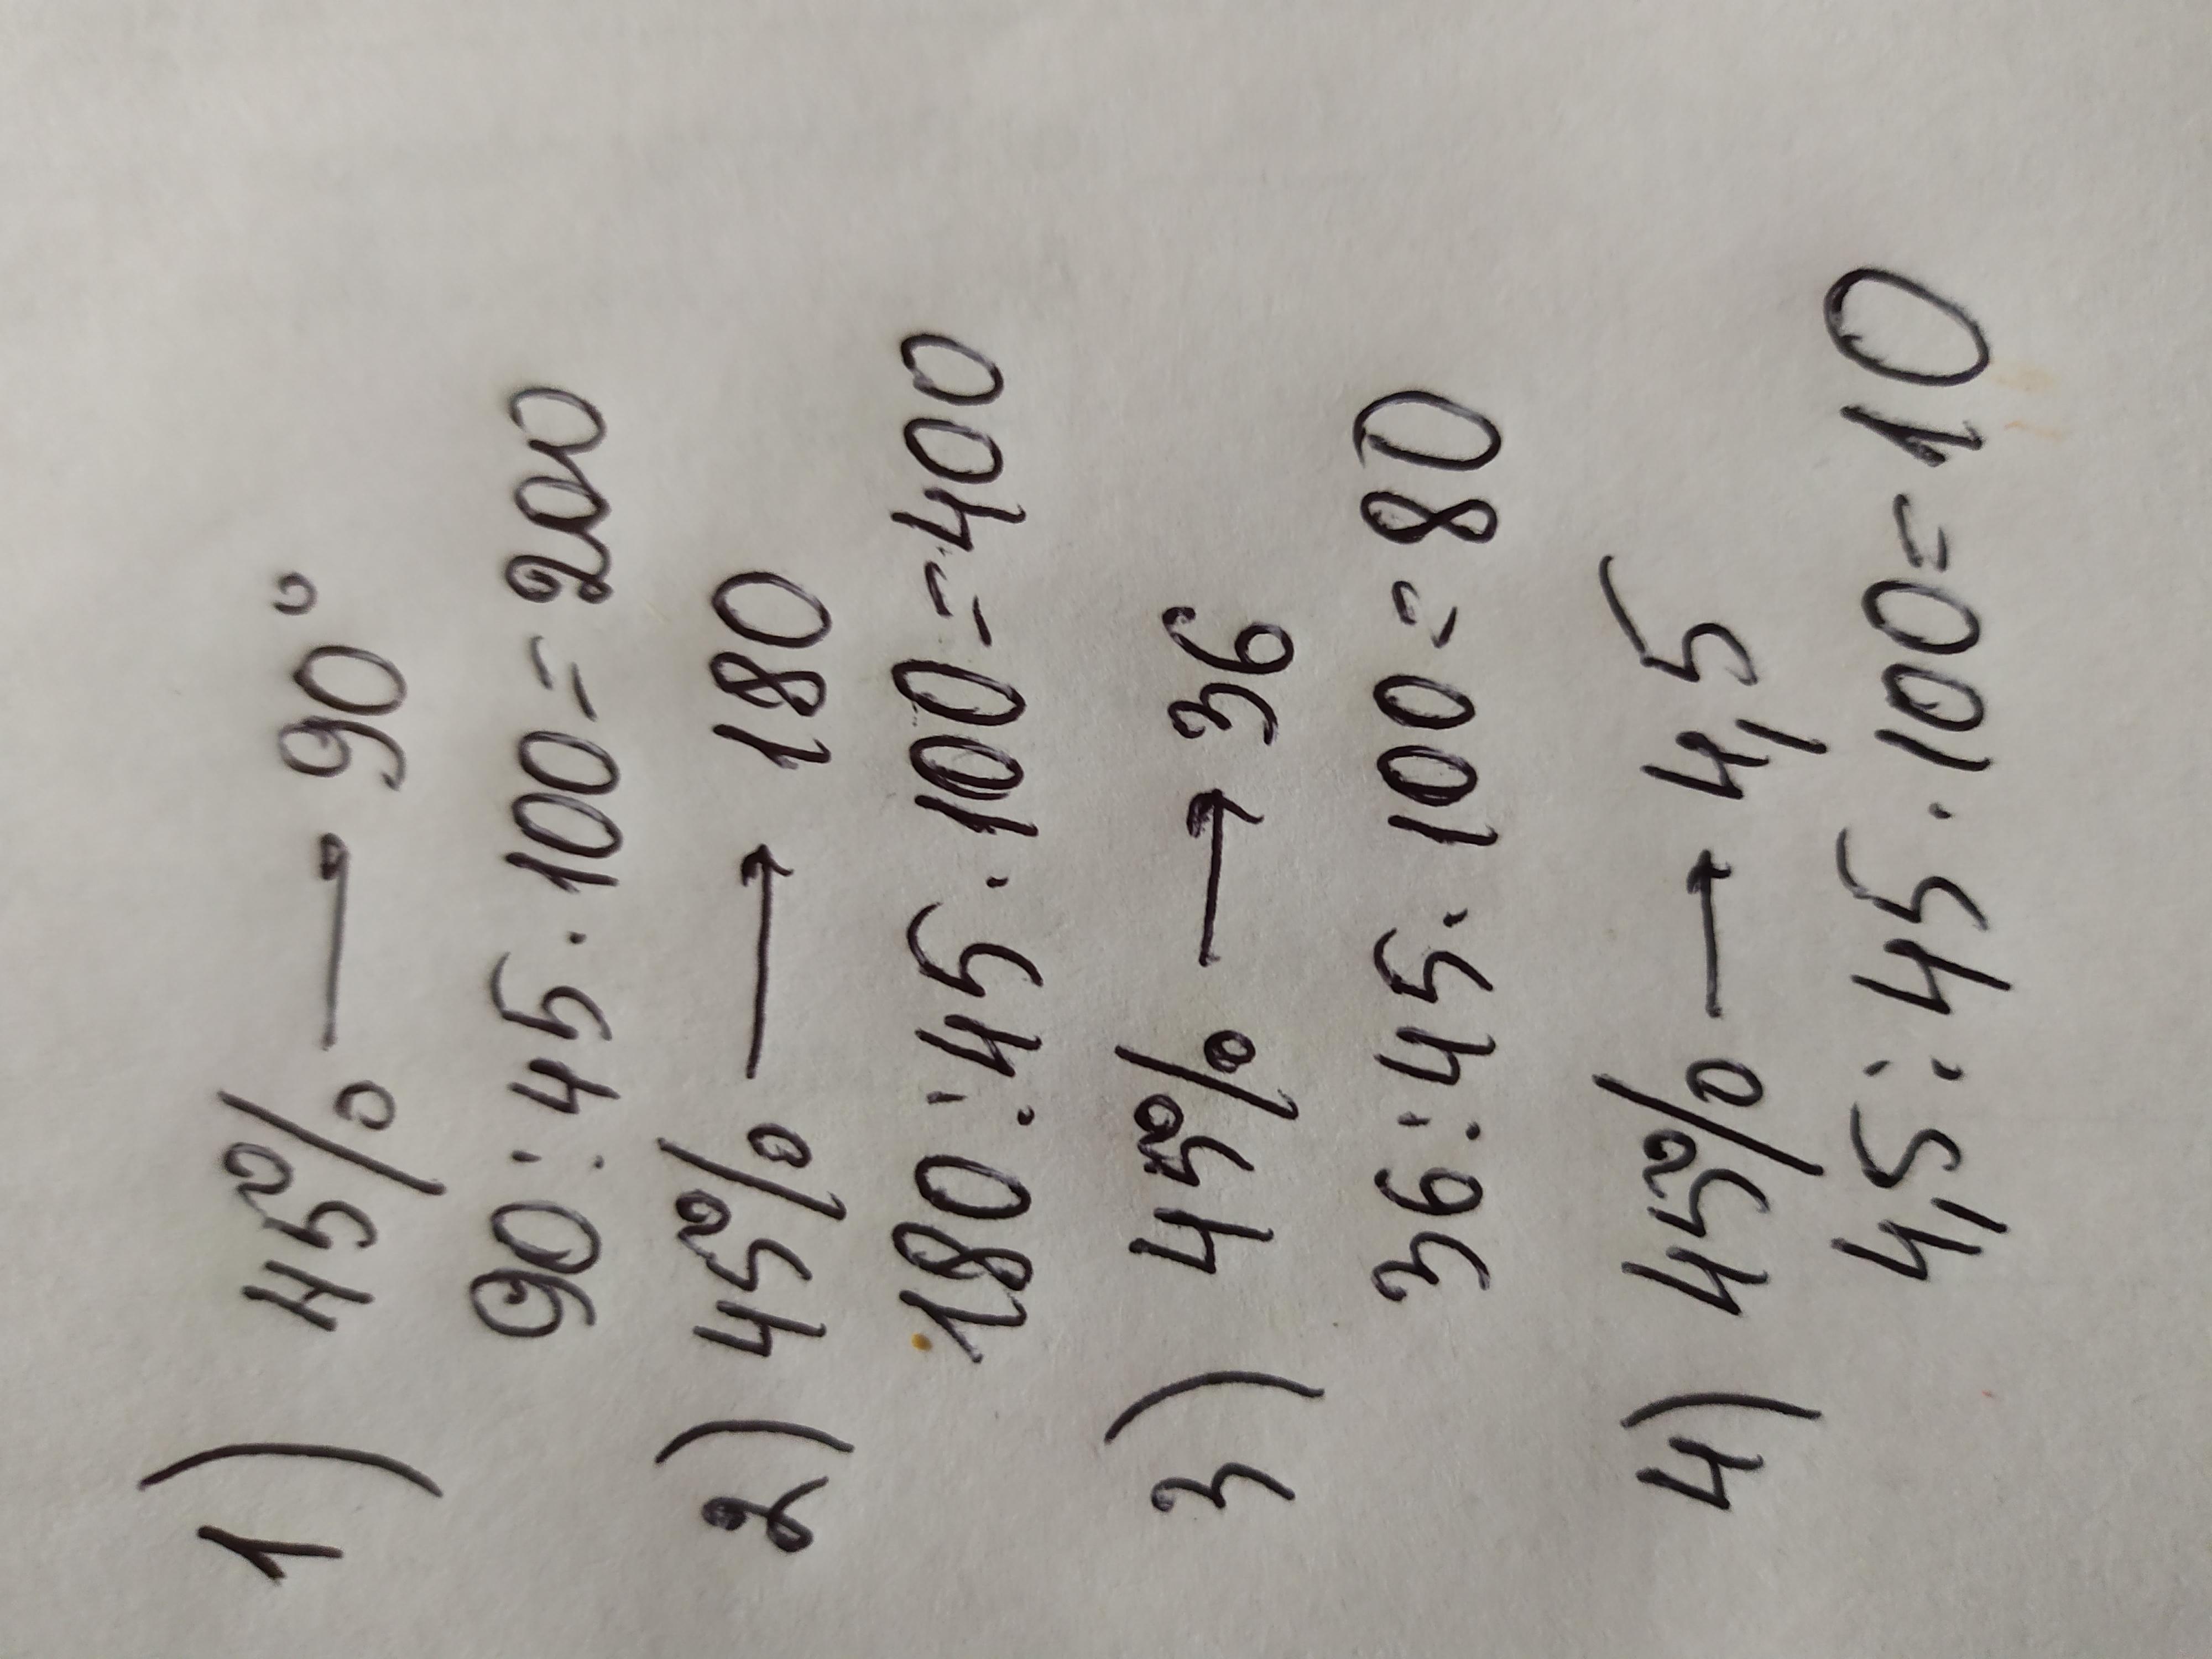 1) 45% → 90°
90:45·100=200
2) 45% → 180
180:45·100=400
3) 45% → 36
36:45·100=80
4) 45% → 4,5
4,5:45·100=10